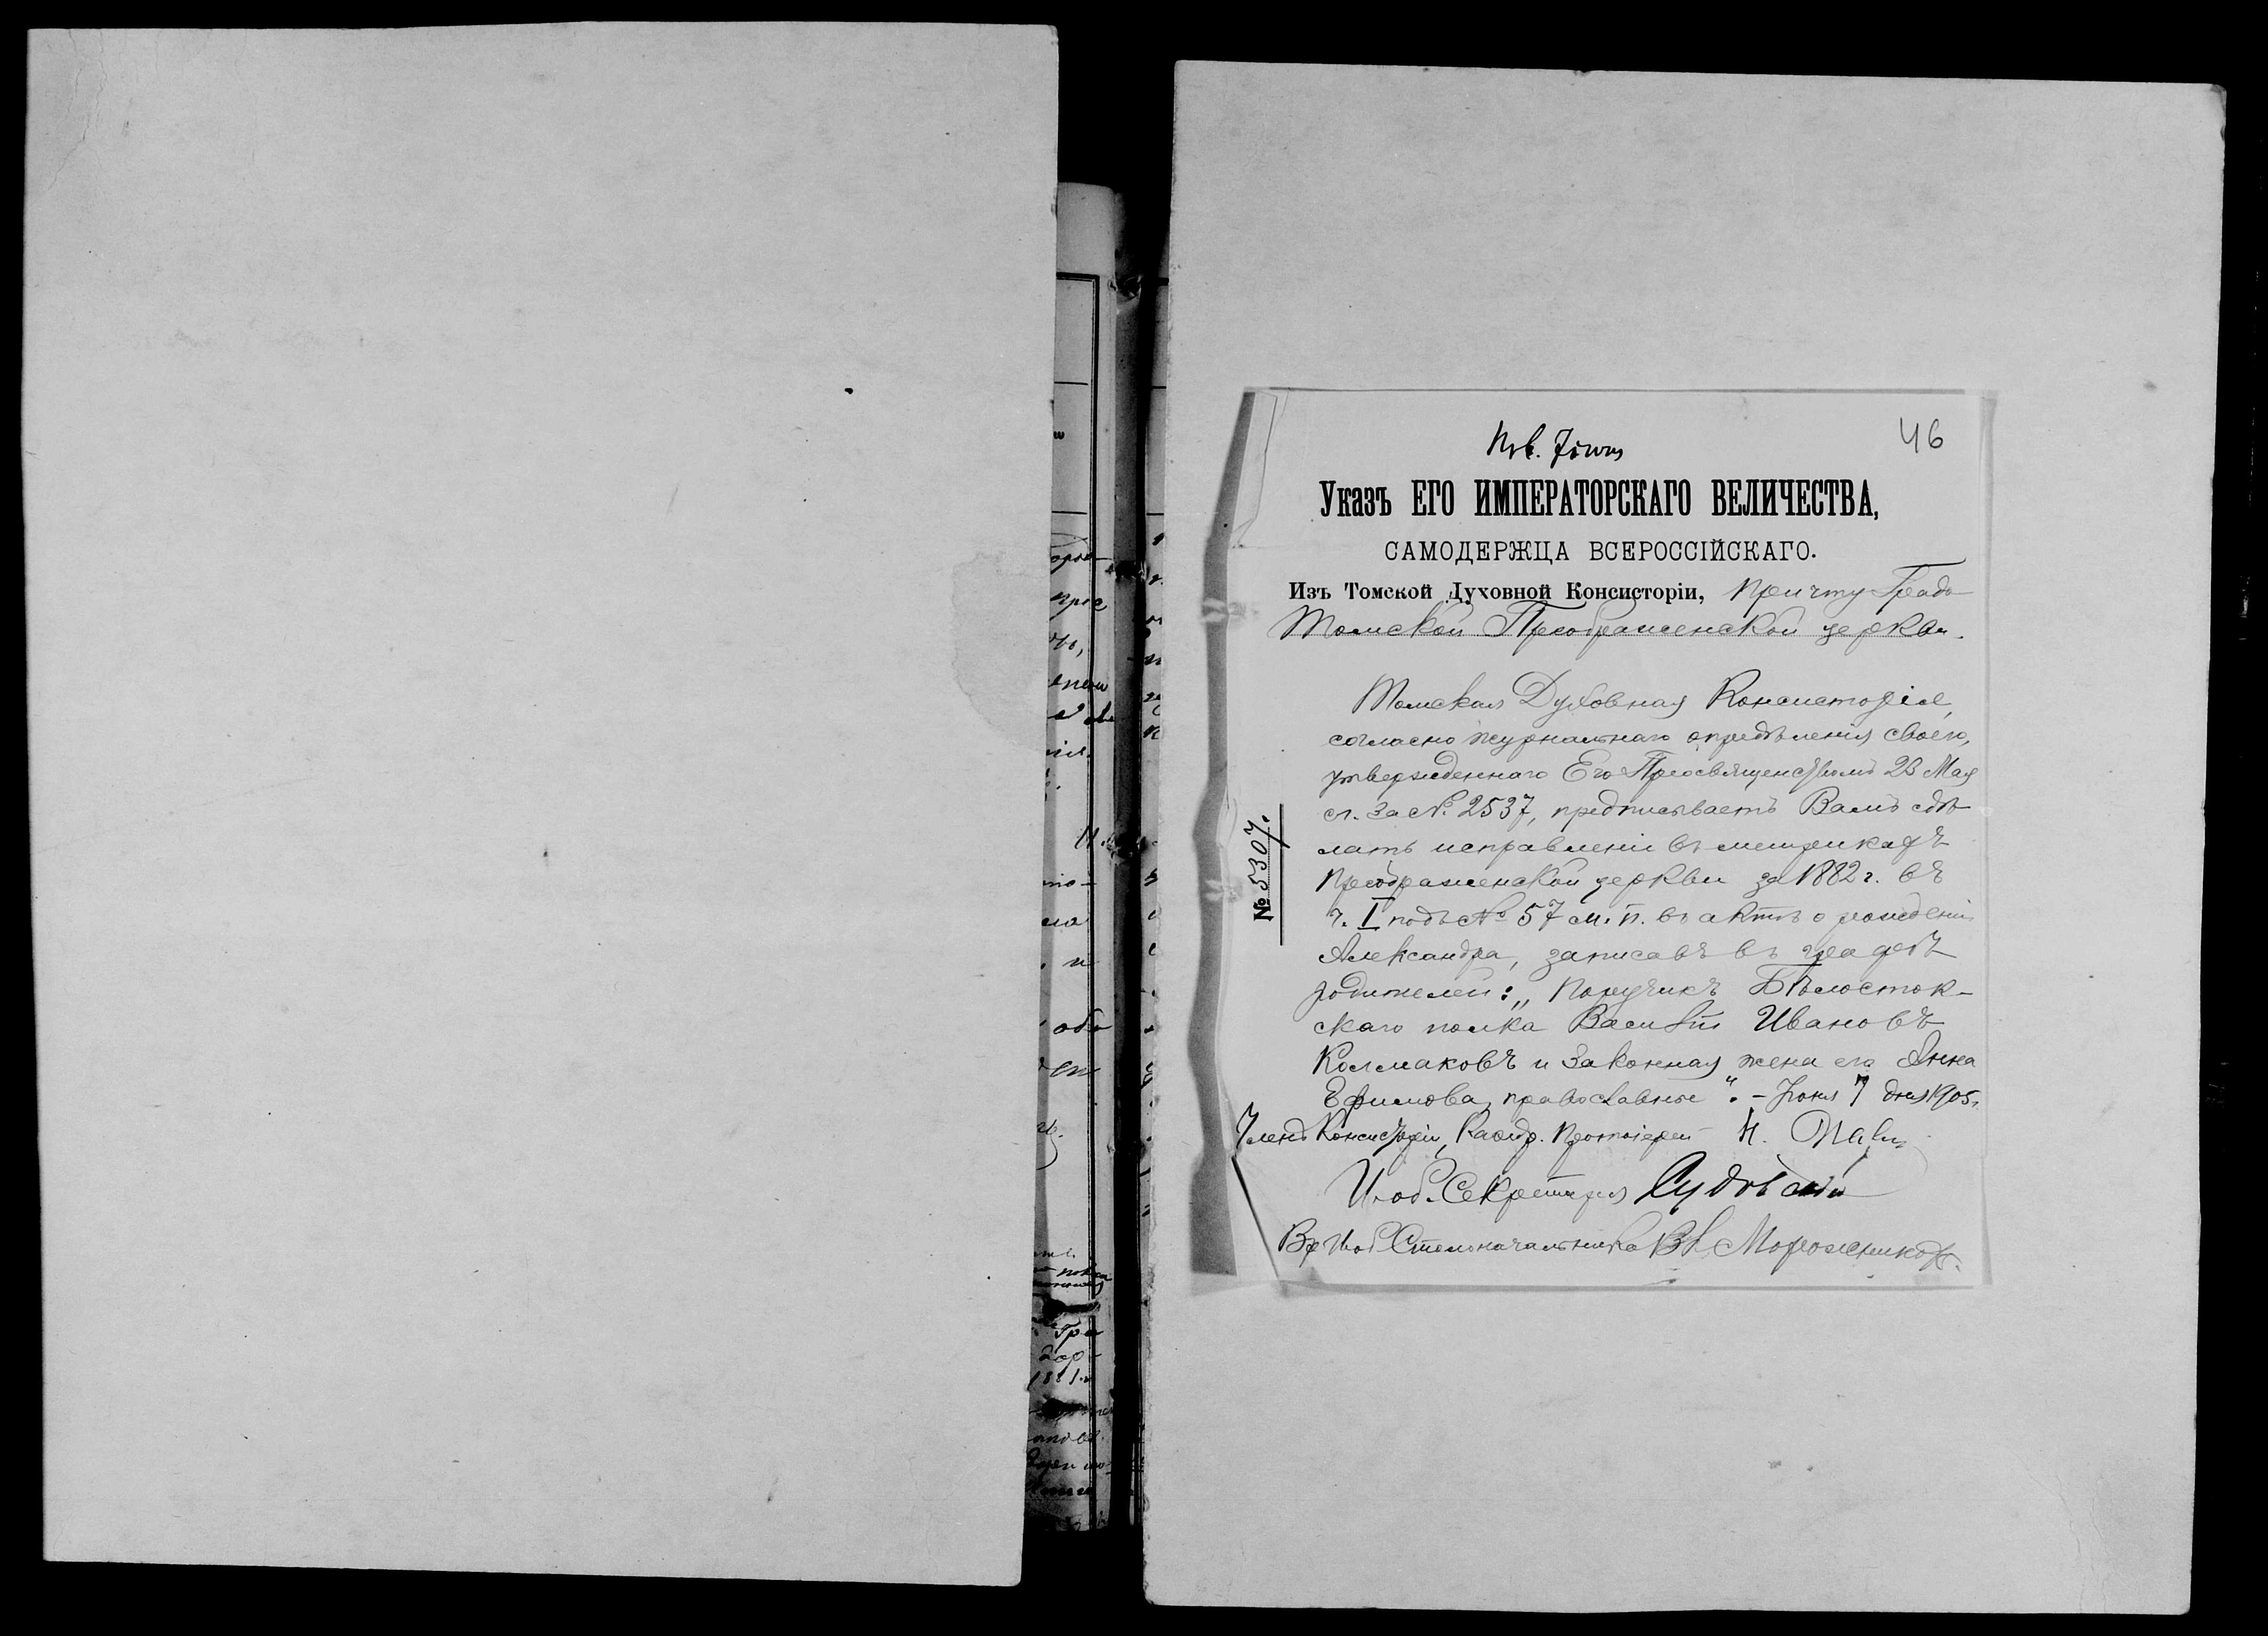 46
Указъ ЕГО ИМПЕРАТОРСКАГО ВЕЛИЧЕСТВА,
САМОДЕРЖЦА ВСЕРОССІЙСКАГО.
Изъ Томской Духовной Консисторіи, Причту Градо-
Томской Преображенской церкви.
№ 5307.
Томская Духовная Консисторія,
согласно журнальнаго опредѣленія своего,
утвержденнаго Его Преосвященствомъ 23 Мая
с.г. за № 2537, предписываетъ Вамъ сдѣ-
лать исправленіе въ метрикахъ
Преображенской церкви за 1882 г. въ
ч. I подъ № 57 м. п. въ актѣ о рожденіи
Александра, записавъ въ графѣ
родителей: „Поручикъ Бѣлосток-
скаго полка Василій Ивановъ
Колмаковъ и законная жена его Анна
Ефимова, православные“. - Іюня 7 дня 1905 г.
Членъ Консисторіи, Каѳедр. Протоіерей Н.
И. об. Секретаря
Вр. И. об. Столоначальника Вл. Морожениковъ.